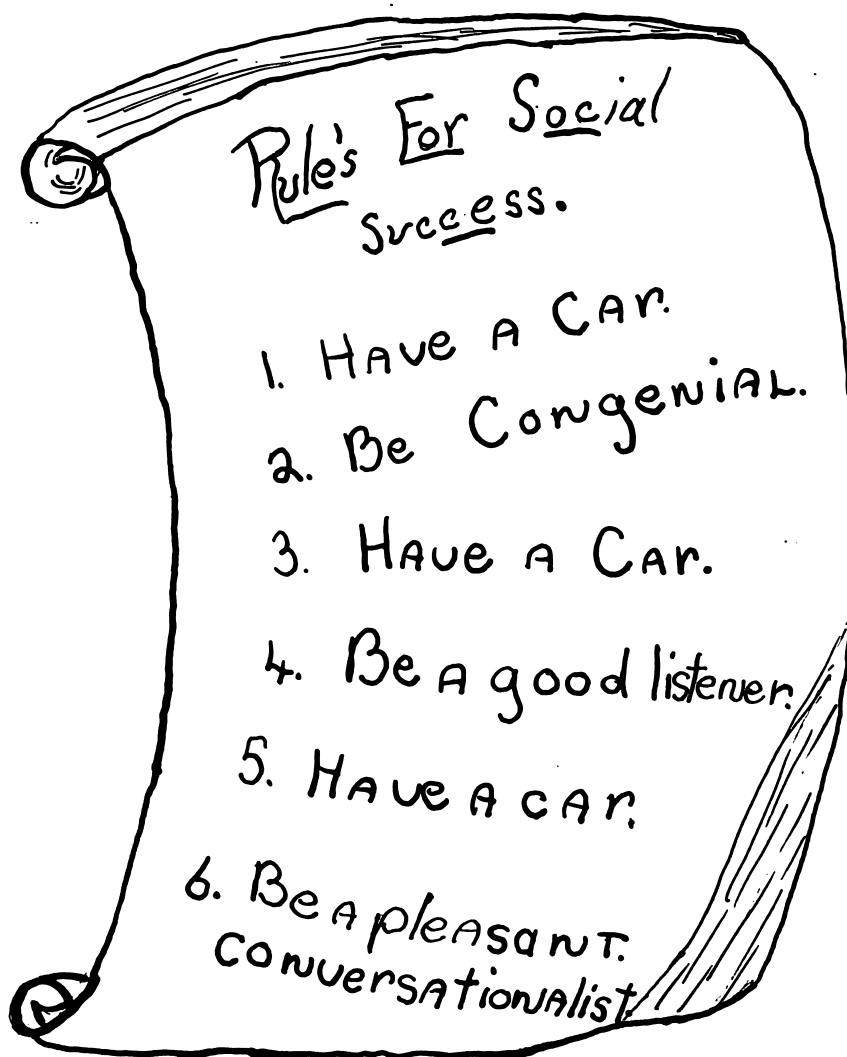 Rule's For Social
success.
1. HAve A CAr.
2. Be CongeniAL.
3. HAve A CAr.
4. Be A good listener.
5. HAve A cAr.
6. Be A pleAsanT.
conversAtionAlist.